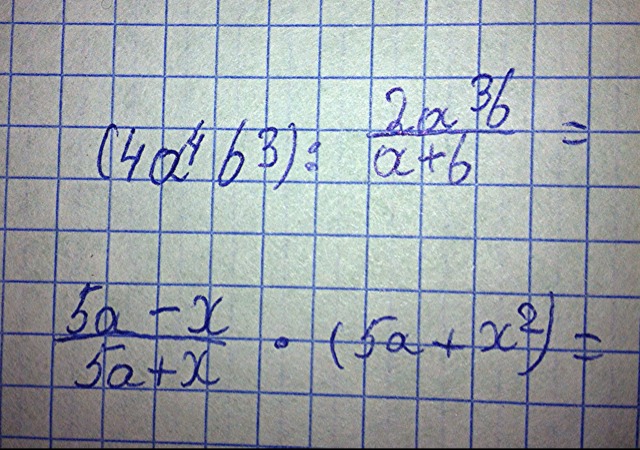 (4a⁴b³) : (2a³b)/(a+b) =
(5a − x)/(5a + x) · (5a + x²) =